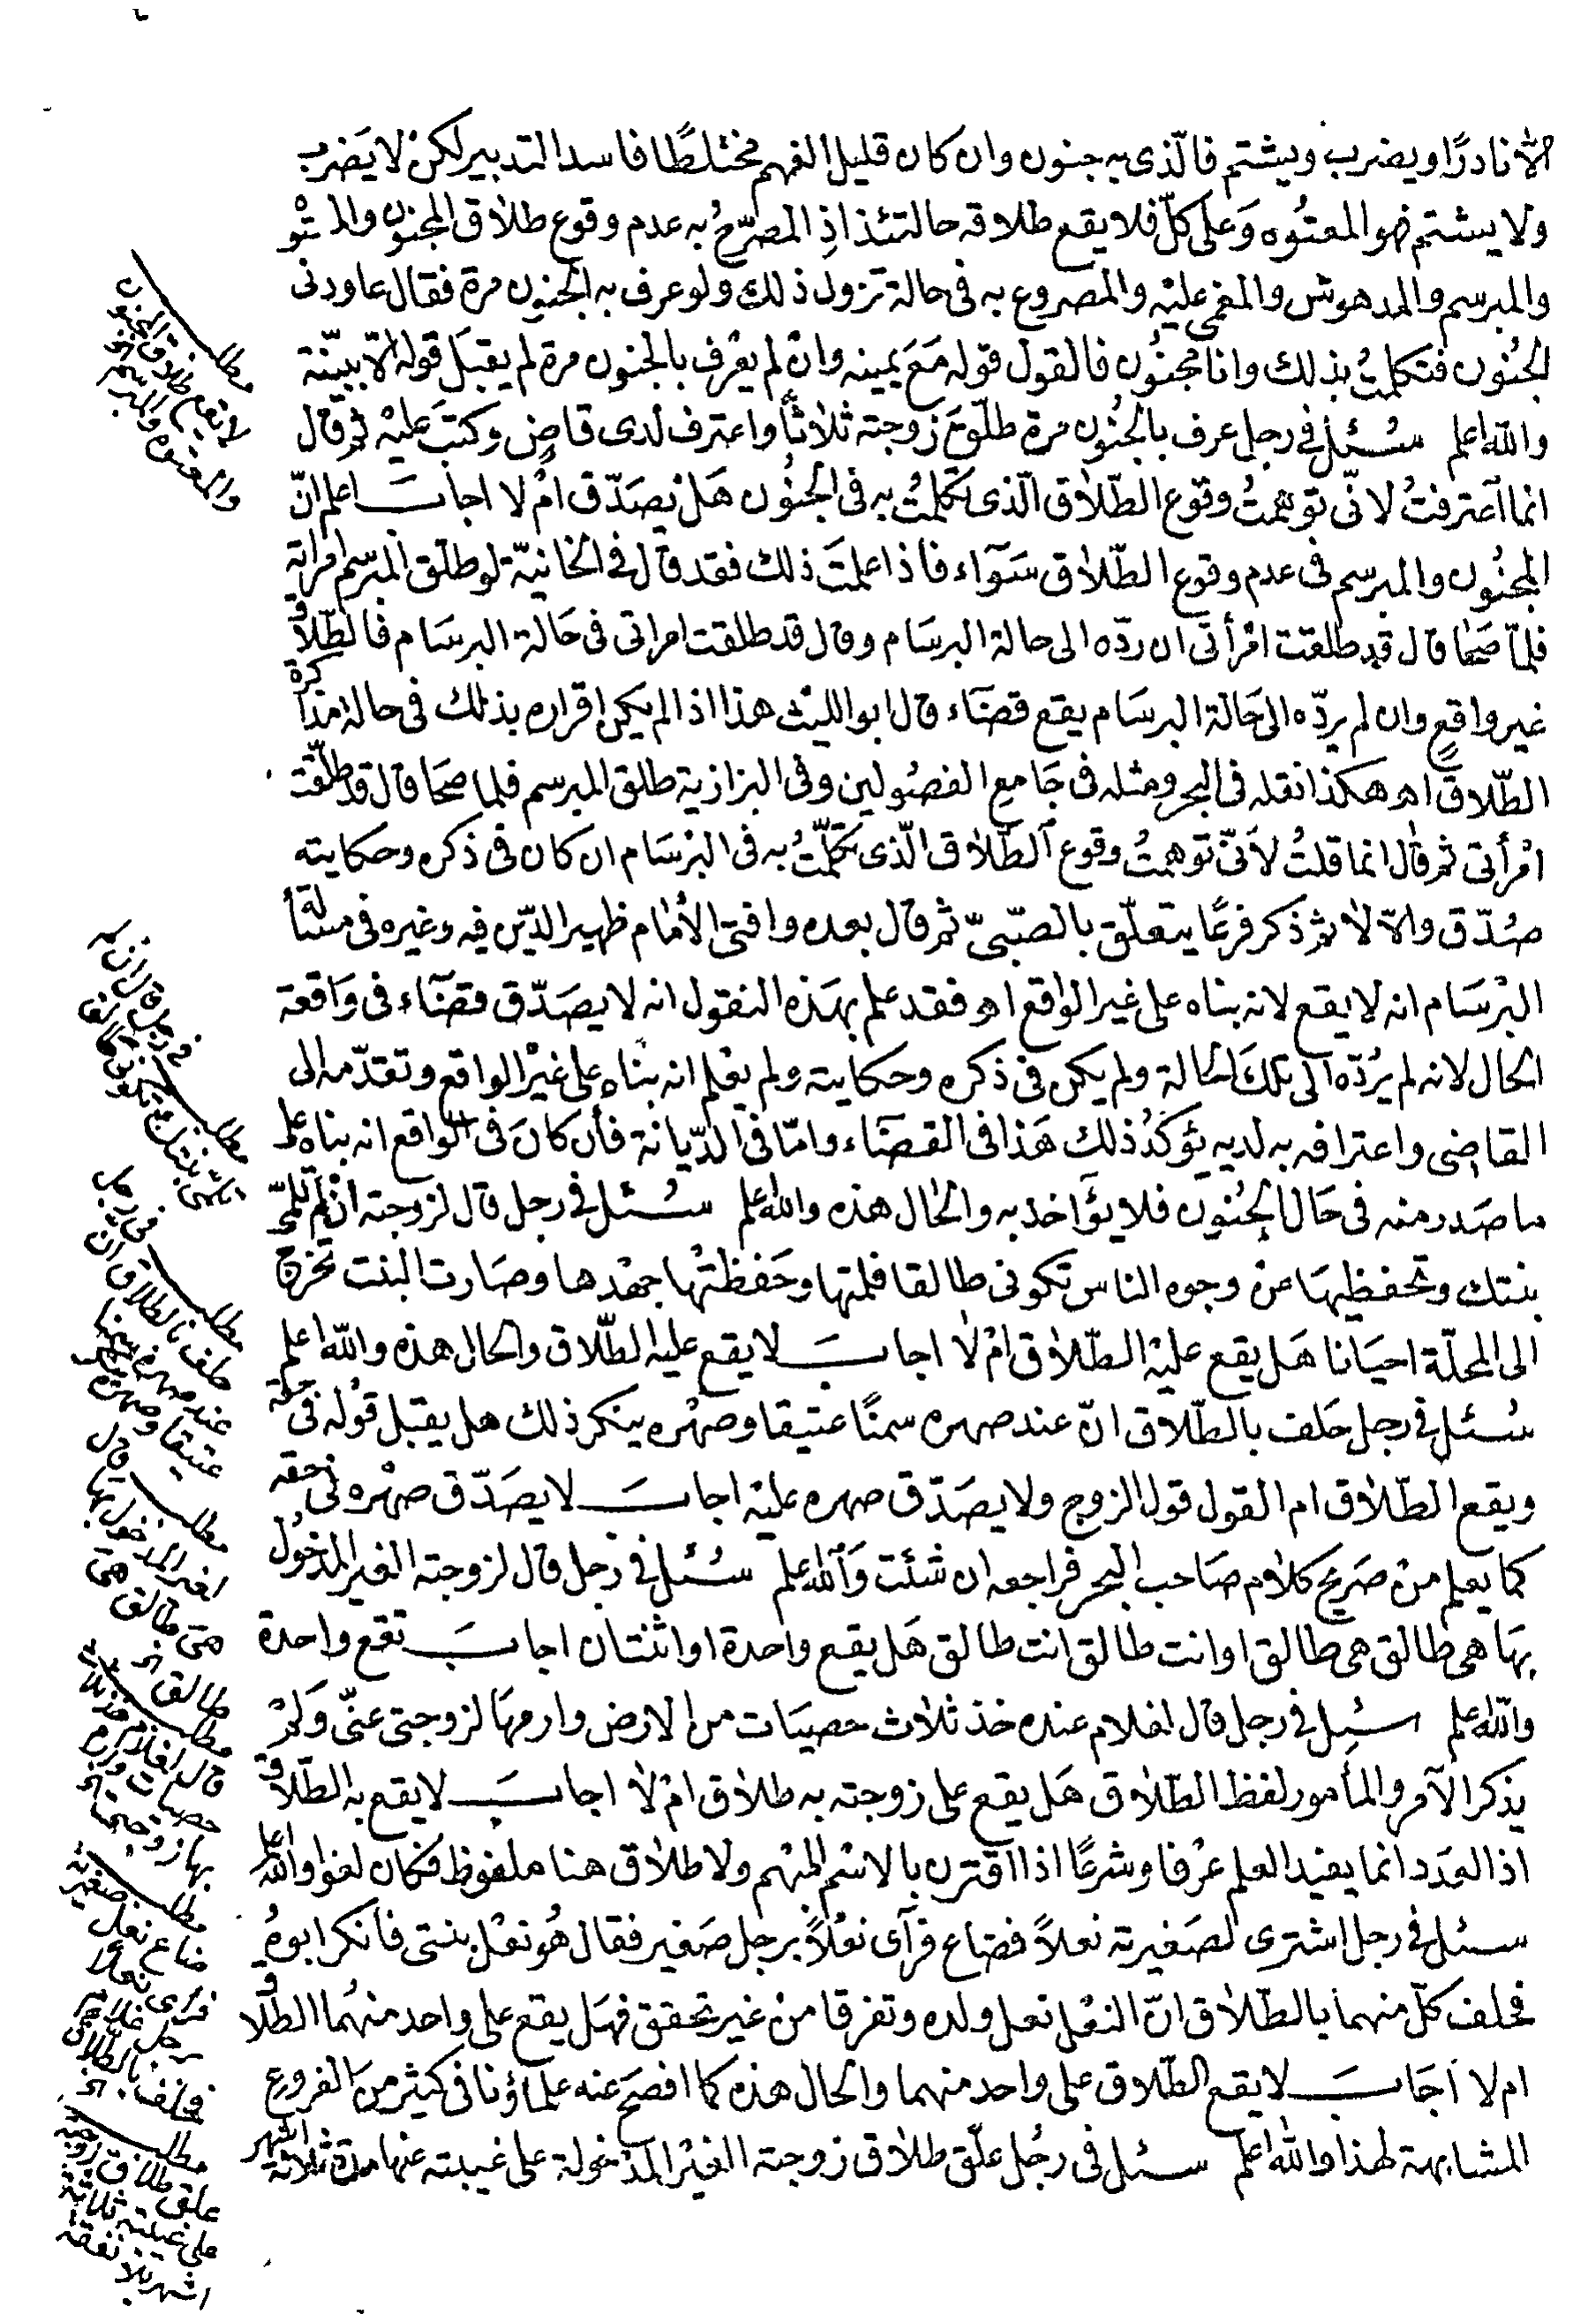 الّا نادرًا ويضرب ويشتم فالّذى به جنون وان كان قليل الفهم مختلطًا فاسد التدبير لكنْ لا يَضرب
ولا يشتم فهو المعتُوه وَعلى كلّ فلا يقع طلاقه حالتئذ اذِ المصرّحُ به عدم وقوع طلاق المجنون والمعتوْه
والمبرسم والمدهوش والمغمى عليْه والمصروع به فى حالة تزول ذلك ولو عرف به الجنون مرة فقال عاودنى
الجنُون فتكلمتُ بذلك وانا مجنُون فالقول قوله مَعَ يمينه وانْ لم يعْرف بالجنون مرة لم يقبَل قوله الّا ببيّنة
والله اعلم سُئل فى رجل عرف بالجنُون مرة طلّق زوجته ثلاثًا واعترف لدى قاضٍ وكتبَ عليْه ثم قال
انما اعترفتُ لانّى توهمتُ وقوع الطّلاق الّذى تكلمتُ به فى الجنُون هَل يصَدّق امْ لا اجابَ اعلم انّ
المجنُون والمبرسم فى عدم وقوع الطّلاق سَوآء فاذا علمتَ ذلك فقد قال فى الخانيّة لو طلّق المبرسم امراته
فلمّا صَحا قال قد طلقت امْرأتى ان ردّه الى حالة البرسَام وقال قد طلقت امراتى فى حَالة البرسَام فالطّلاق
غير واقعٍ وان لم يردّه الى حَالة البرسَام يقع قضَآء قال ابو الليث هذا اذا لم يكن اقراره بذلك فى حالة مذاكرة
الطّلاق اهـ هكذا نقله فى البحر ومثله فى جَامع الفصُولين وفى البزازية طلق المبرسم فلما صحَا قال قد طلّقت
امْرأتى ثم قال انما قلتُ لأنّى توهمتُ وقوع الطّلاق الّذى تكلّمتُ به فى البرْسَام ان كان فى ذكره وحكايته
صُدّق والّا لا ثم ذكر فرعًا يتعلّق بالصّبىّ ثم قال بعده وافتى الأمَام ظهير الدّين فيه وغيره فى مسئلة
البرْسَام انه لا يقع لانه بناه على غير الواقع اهـ فقد علم بهَذه النقول انه لا يصَدّق قضَآء فى وَاقعة
الحال لانه لم يرُدّه الى تلكَ الحالة ولم يكن فى ذكره وحكايته ولم يعْلم انه بنَاه على غيْر الواقع وتقدّمه الى
القاضى واعترافه به لديه يؤكدُ ذلك هَذا فى القضَآء وامّا فى الدّيانة فأن كانَ فى الوَاقع انه بناه على
ما صَدر منه فى حَال الجنُون فلا يؤَاخذ به والحَال هذه والله اعلم سُئل فى رجل قال لزوجته انْ لم تلمّى
بنتك وتحفظيهَا عنْ وجوه الناس تكونى طالقا فلمتها وحَفظتْها جهْدها وصَارت البنت تخرج
الى المحلّة احيَانا هَل يقع عليْه الطّلاق امْ لا اجابَ لا يقع عليْه الطّلاق والحال هذه والله اعلم
سُئل فى رجل حَلف بالطّلاق انّ عند صهره سمنًا عتيقا وصهْره ينكر ذلك هل يقبل قوْله فى حقه
ويقع الطّلاق ام القول قول الزوج ولا يصَدّق صهره عليْه اجابَ لا يصَدّق صهْره فى حقه
كما يعلم منْ صَريح كلام صَاحب البحر فراجعه ان شئت وَالله اعلم سُئل فى رَجل قال لزوجته الغير المدخُول
بهَا هى طالق هى طالق او انت طالق انت طالق هَل يقع واحدة او اثنتان اجابَ تقع واحدة
والله اعلم سئِل فى رجل قال لغلام عنده خذ ثلاث حصيَات من الارض وارمهَا لزوجتى عنّى وَلمْ
يذكر الآمر والمأمور لفظ الطّلاق هَل يقع على زوجته به طلاق امْ لا اجابَ لا يقع به الطّلاق
اذ العدَد انما يفيد العلم عرْفا وشرعًا اذا اقترن بالاسْم المبْهم ولا طلاق هنا ملفوظ فكان لغوا والله اعلم
سئل فى رجل اشترى لصَغيرته نعلاً فضاع فرآى نعْلاً برجل صَغير فقال هُو نعْل بنتى فانكر ابوهُ
فحلف كلّ منهما بالطّلاق انّ النعْل نعل ولده وتفرقا منْ غير تحقق فهَل يقع على واحد منهُما الطّلاق
ام لا اَجَابَ لا يقع الطّلاق على واحد منهما والحال هذه كما افصَح عنه علمآؤنا فى كثير منَ الفروع
المشابهة لهذا والله اعلم سئل فى رجُل علّق طلاق زوجته الغيْر المدْخولة على غيبته عنها مدة ثلاثة اشهر
مطلب
لا يقع طلاق المجنون
والمعتوه والمبرسم
مطلب
مطلب
فى رجل
حلف بالطلاق انّ
عند صهره سمنا
عتيقا وصهره
مطلب قال
لغير المدخول بها
هى طالق هى
طالق
مطلب
قال لغلام خذ ثلاث
حصيات وارم
بها زوجتى
مطلب
ضاع نعل صغيرته
فرأى نعلا
برجل غلام
فحلف بالطلاق
مطلب
علق طلاق زوجته
على غيبته ثلاثة
اشهر بلا نفقة